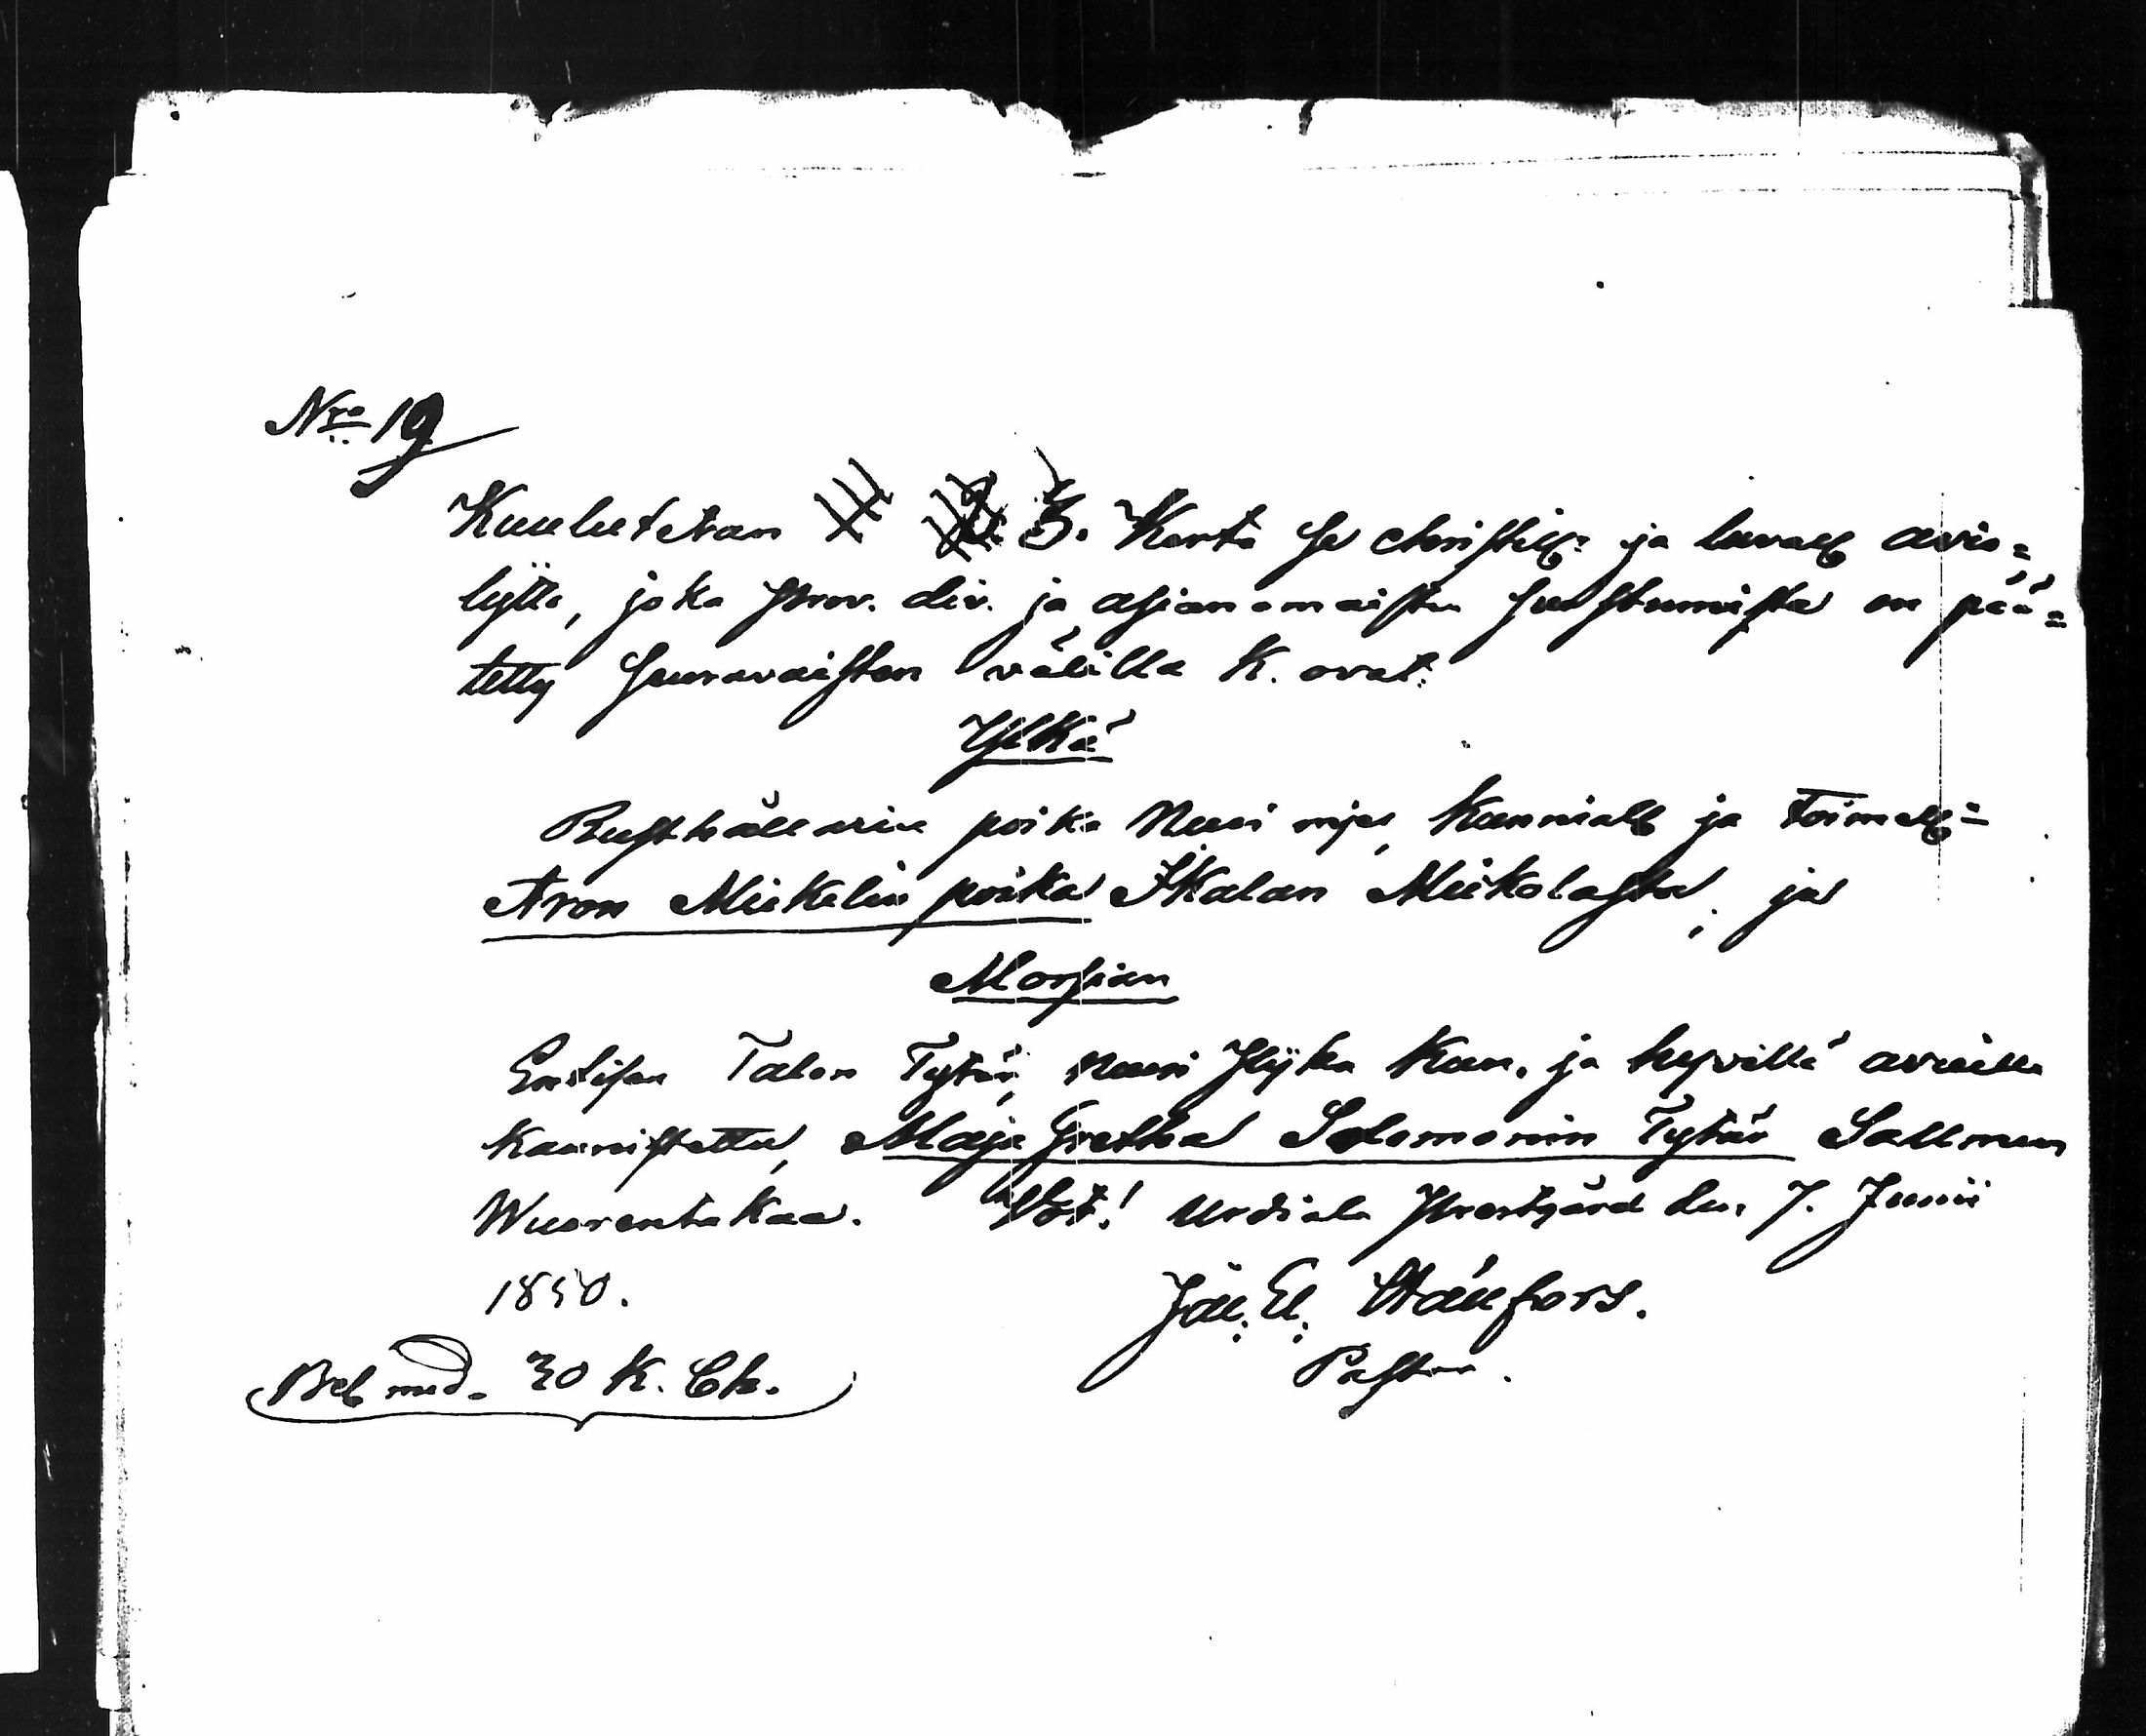 Nro 19
Kuulutetan 3. Kerta se christill: ja luvall avio=
lytto, joka prov. div. ja asianomaisten suostumista on pää=
tetty seuravaisten välillä K. ovat:
Ylkä
Rusthållarin poika Nuori mjes, kunniall ja toimell=
Aron Mickelin poika Skalan Mickolasta; ja
Morsian
Entisen Talon Tytär, nuori Pijka kun. ja hyvillä avuilla
kaunistettu, Maja Gretha Salomonin Tytär Sallmen
Wuorentakaa. Urdiala Prestgård den 7. Junii
1850.
Joh. El. Stånfors.
Pastor.
Bet med. 30 k.